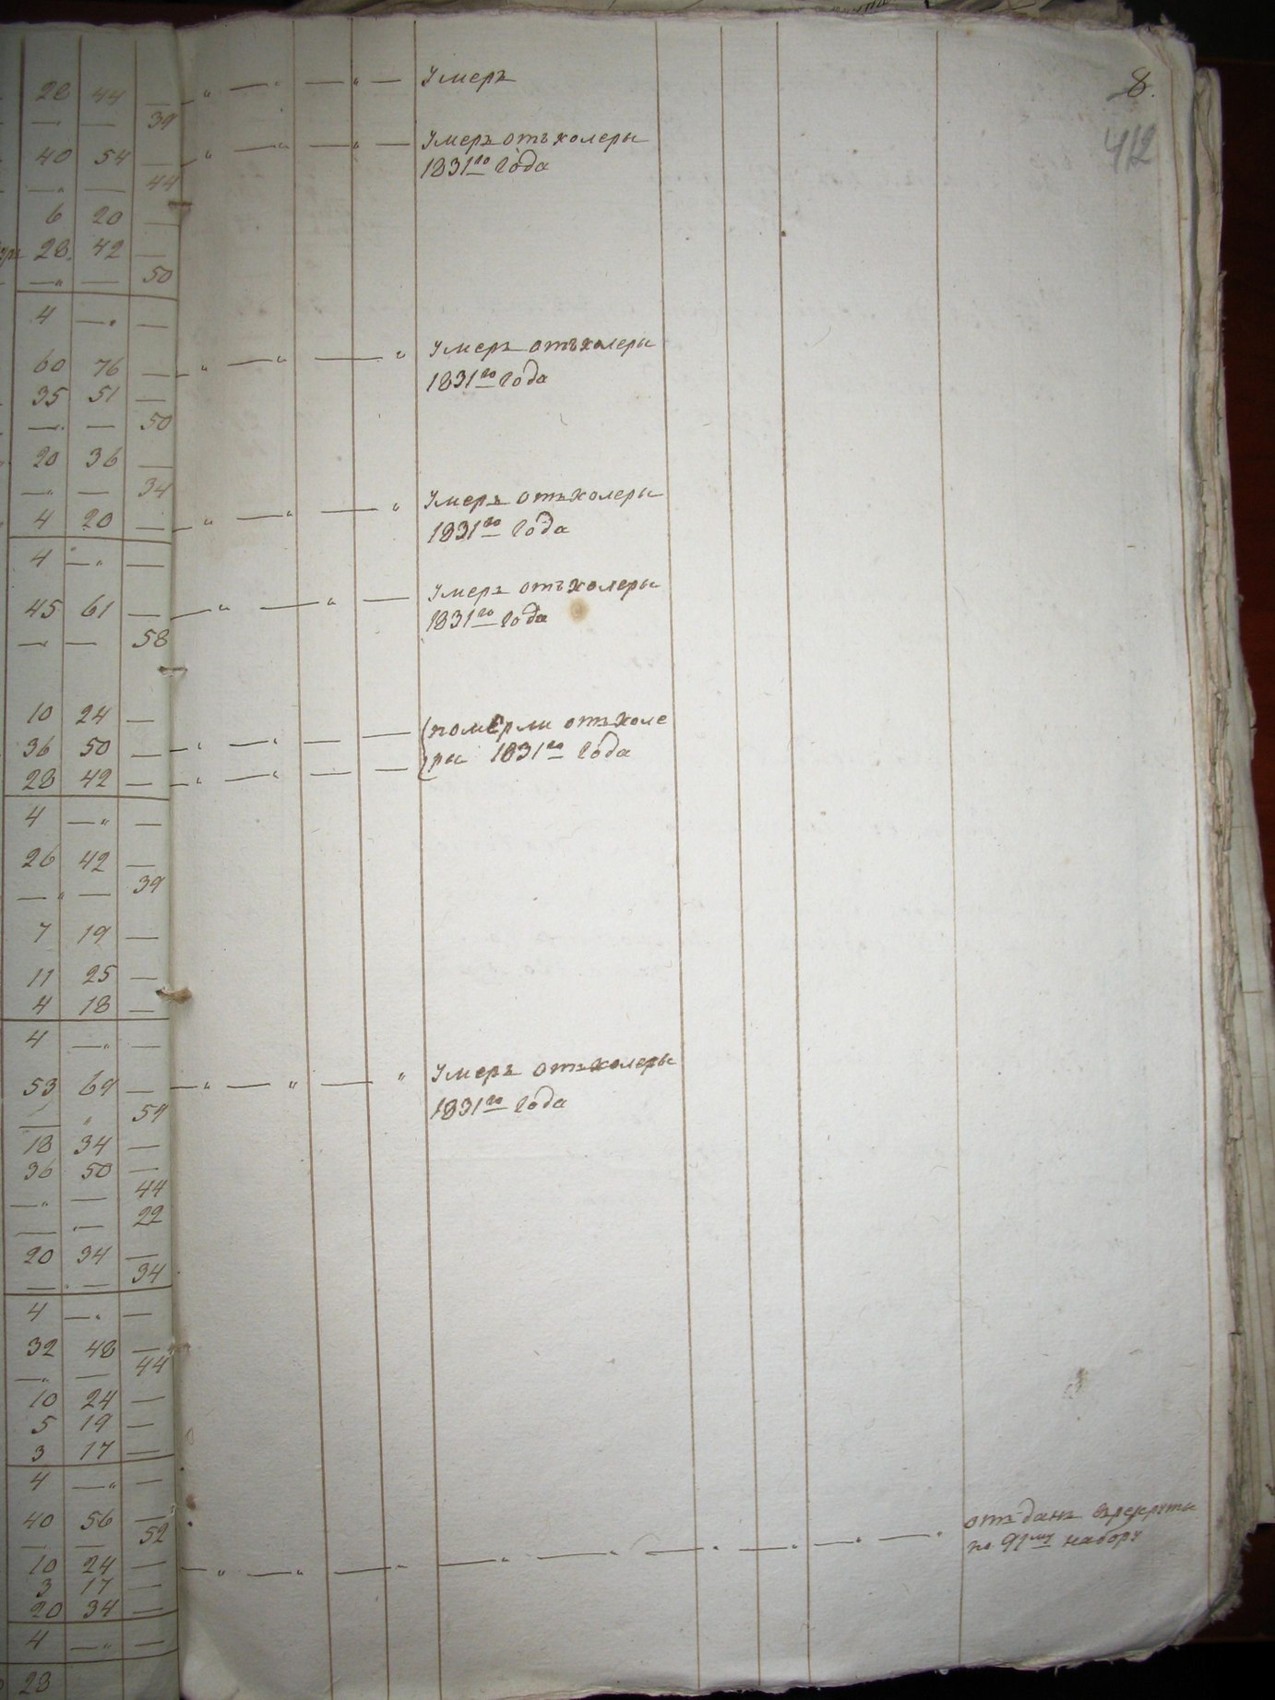 8.
412
28 44 —
— — 39
Умеръ
40 54 —
— — 44
Умеръ отъ холеры
1831го года
6 20 —
28 42 —
— — 50
4 — —
60 76 —
Умеръ отъ холеры
1831го года
35 51 —
— — 50
20 36 —
— — 34
4 20 —
Умеръ отъ холеры
1831го года
4 — —
45 61 —
— — 58
Умеръ отъ холеры
1831го года
10 24 —
36 50 —
28 42 —
померли отъ холе
ры 1831го года
4 — —
26 42 —
— — 39
7 19 —
11 25 —
4 18 —
4 — —
53 69 —
— — 54
Умеръ отъ холеры
1831го года
18 34 —
36 50 —
— — 44
— — 22
20 34 —
— — 34
4 — —
32 48 —
— — 44
10 24 —
5 19 —
3 17 —
4 — —
40 56 —
— — 52
10 24 —
3 17 —
20 34 —
отъданъ врекруты
по 91му набору
4 — —
23